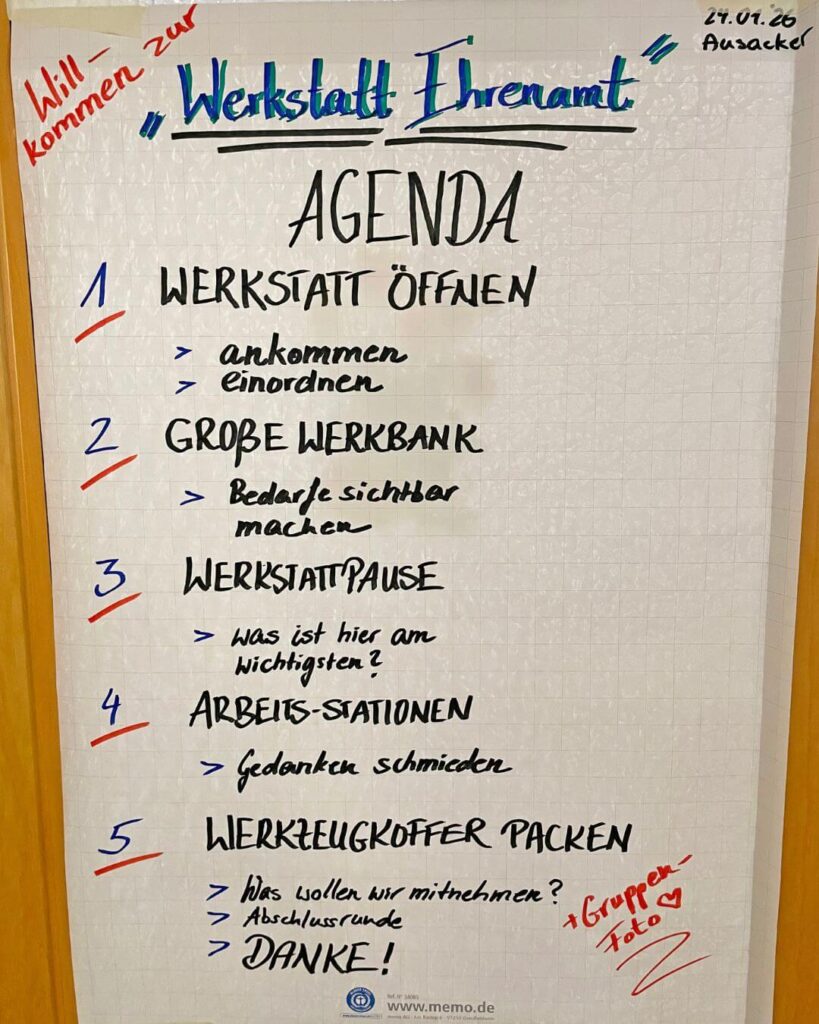 Will-
kommen zur
24.01.26
Ausacker
„Werkstatt Ehrenamt"
AGENDA
1 WERKSTATT ÖFFNEN
> ankommen
> einordnen
2 GROßE WERKBANK
> Bedarfe sichtbar
machen
3 WERKSTATTPAUSE
> was ist hier am
wichtigsten?
4 ARBEITS-STATIONEN
> Gedanken schmieden
5 WERKZEUGKOFFER PACKEN
> Was wollen wir mitnehmen?
> Abschlussrunde
> DANKE!
+ Gruppen-
Foto ♡
www.memo.de